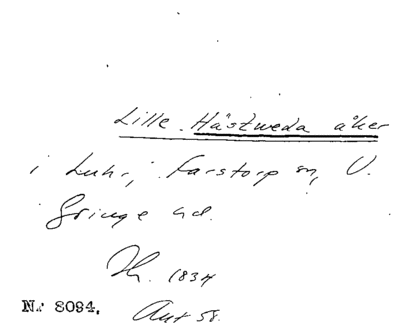 Lille Hästveda åker
i Luhr, Farstorp sn, V.
Göinge hd.
1834
Nr 8094. Aut 58.